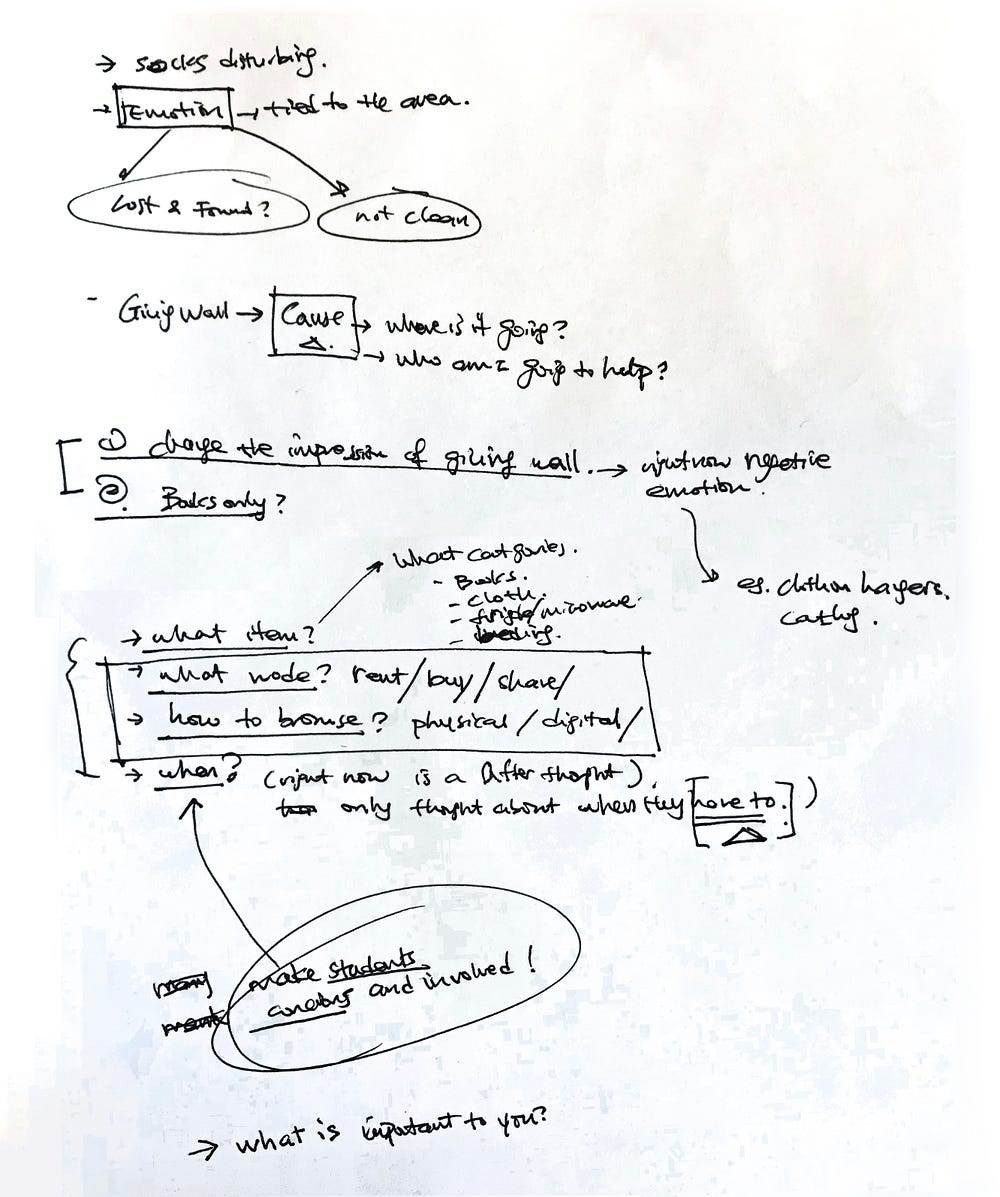 → socks disturbing.
→ Emotion → tied to the area.
Lost & Found?
not clean
- Giving Wall → Cause → where is it going?
→ who am I going to help?
① change the impression of giving wall. → right now negative
emotion.
② Books only?
eg. clothes hangers.
What categories.
- Books.
- cloth.
- fridge/microwave.
→ what item?
→ what mode? rent/buy/share/
→ how to browse? physical/digital/
→ when? (right now is a After thought).
only thought about when they have to.)
make students
and involved!
→ what is important to you?